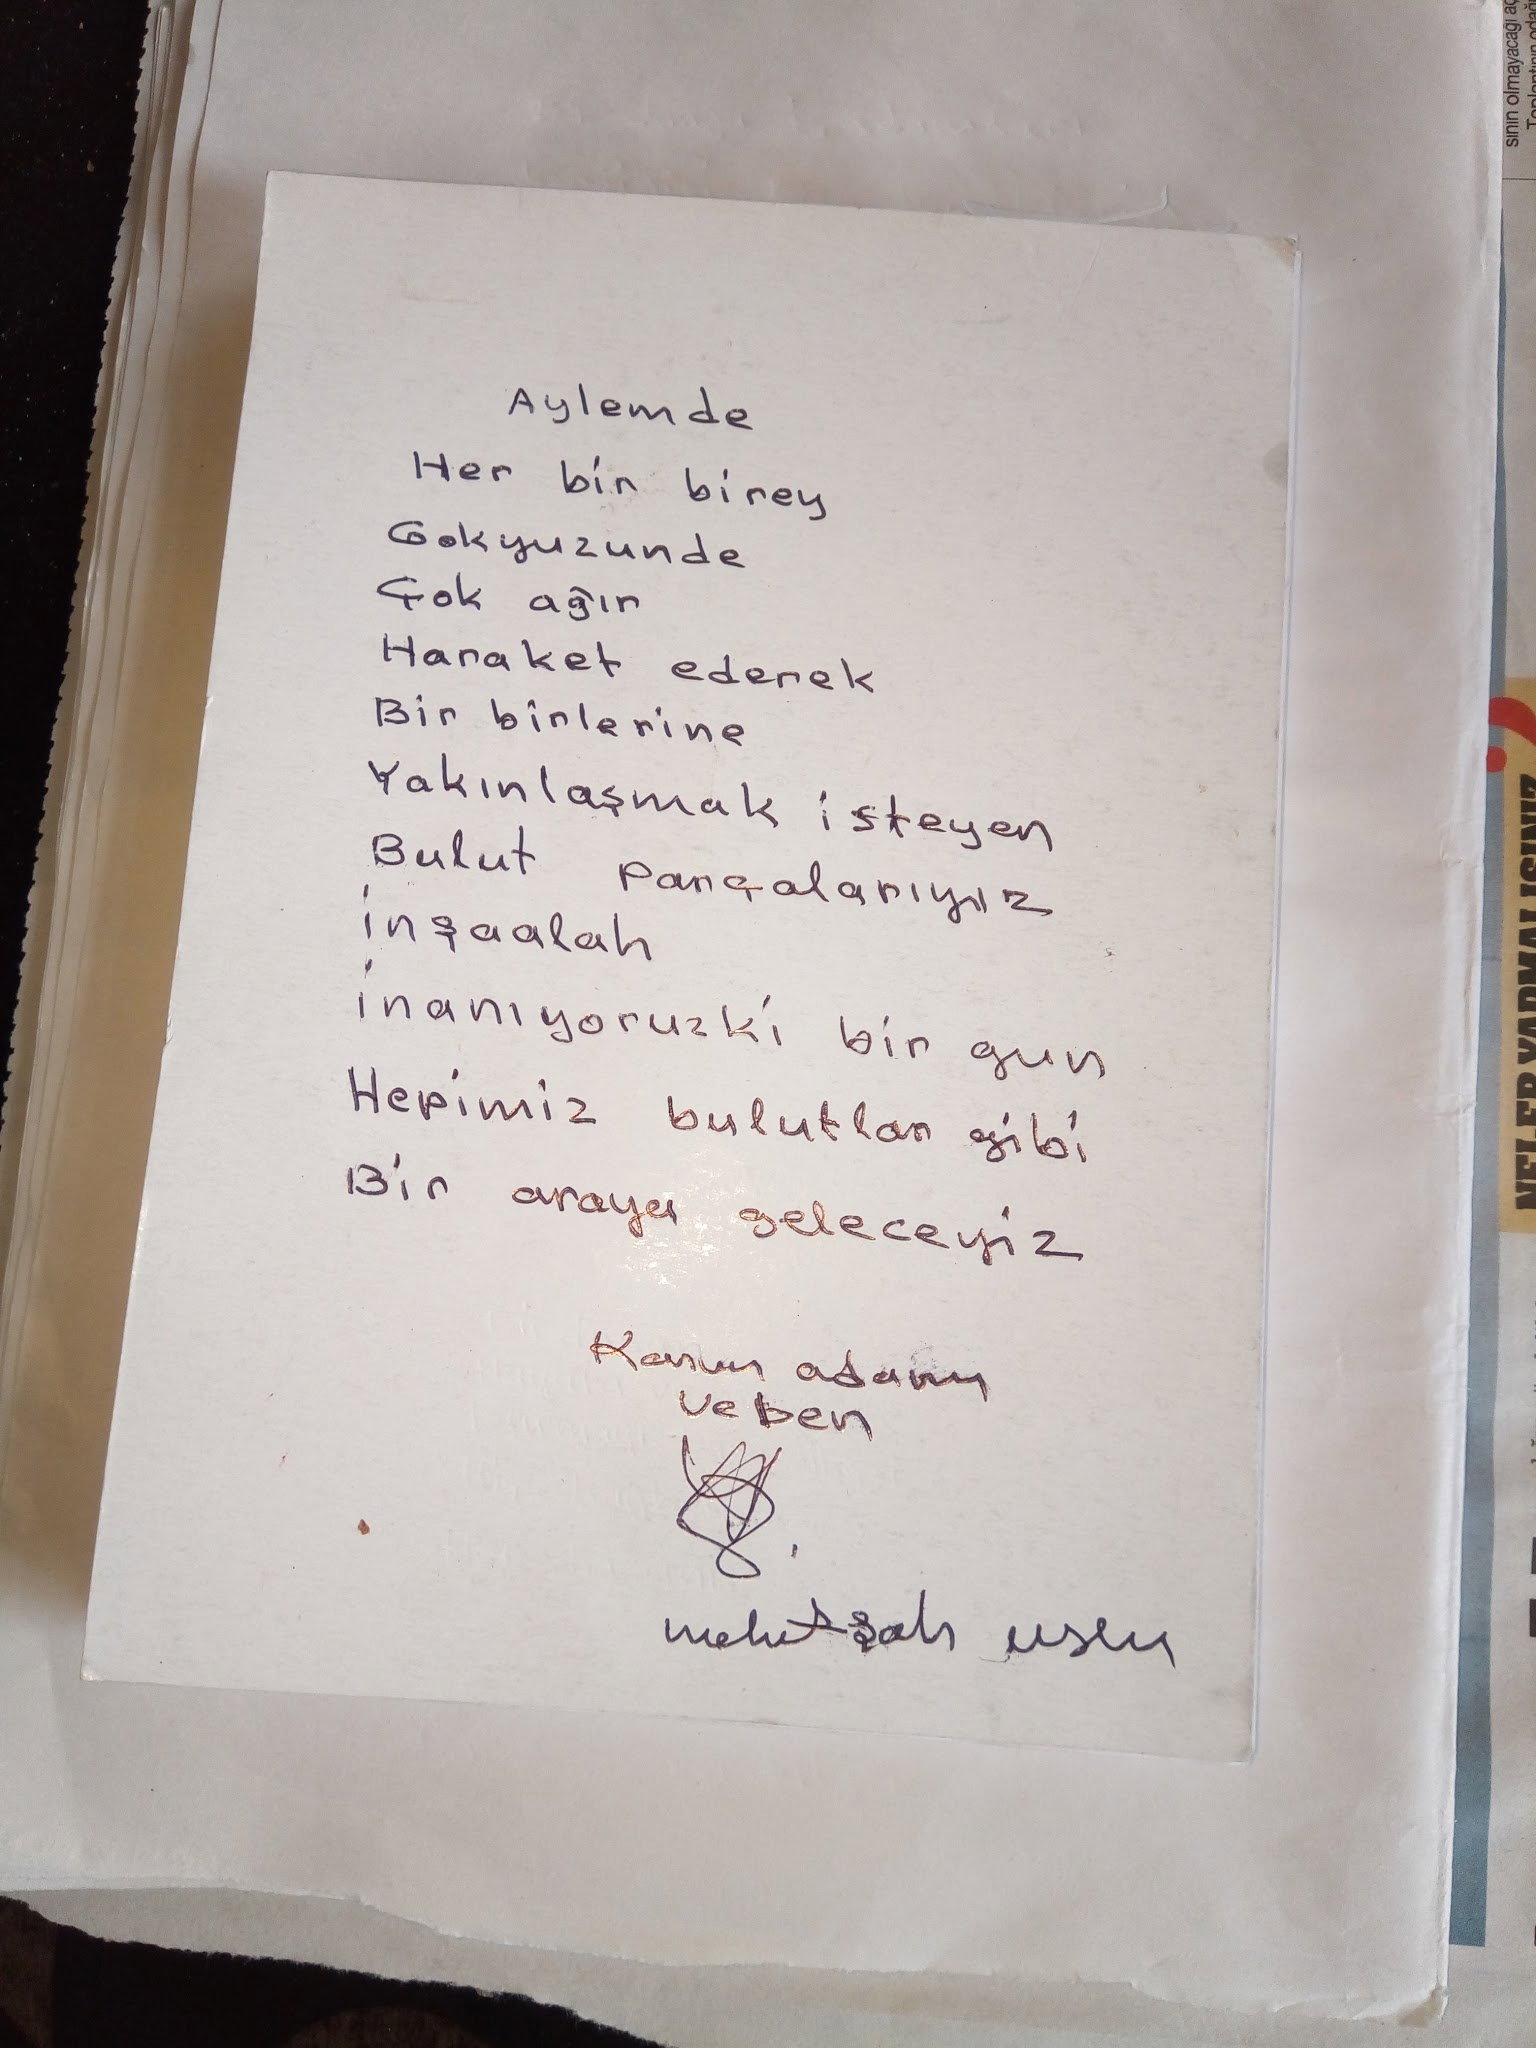 Aylemde
Her bir birey
Gokyuzunde
Çok ağır
Haraket ederek
Bir birlerine
Yakınlaşmak isteyen
Bulut parçalarıyız
inşaalah
inanıyoruzki bir gun
Hepimiz bulutlar gibi
Bir araya geleceyiz
Kanun adamı
ve ben
mehmetşah uslu
sının olmayacağı aç
NELER YAPMALISINIZ
?